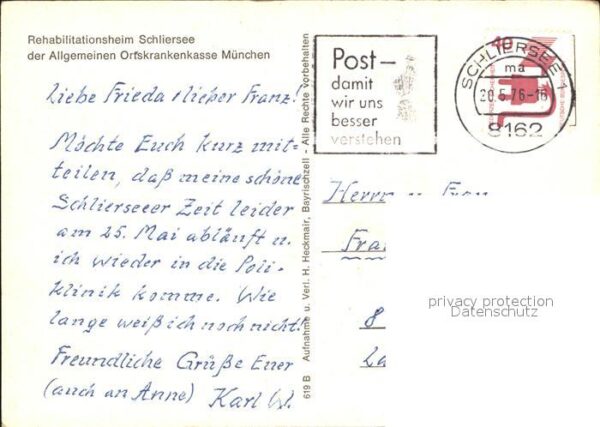 Rehabilitationsheim Schliersee
der Allgemeinen Ortskrankenkasse München
Liebe Frieda + lieber Franz.
Möchte Euch kurz mit-
teilen, daß meine schöne
Schlierseer Zeit leider
am 25. Mai abläuft u.
ich wieder in die Poli-
klinik komme. Wie
lange weiß ich noch nicht.
Freundliche Grüße Euer
(auch an Anne) Karl W.
619 B Aufnahme u. Verl. H. Heckmair, Bayrischzell - Alle Rechte vorbehalten
Post-
damit
wir uns
besser
verstehen
SCHLIERSEE 1
ma
20.5.76-18
8162
10
Herrn u. Frau
Fra
8
La
privacy protection
Datenschutz